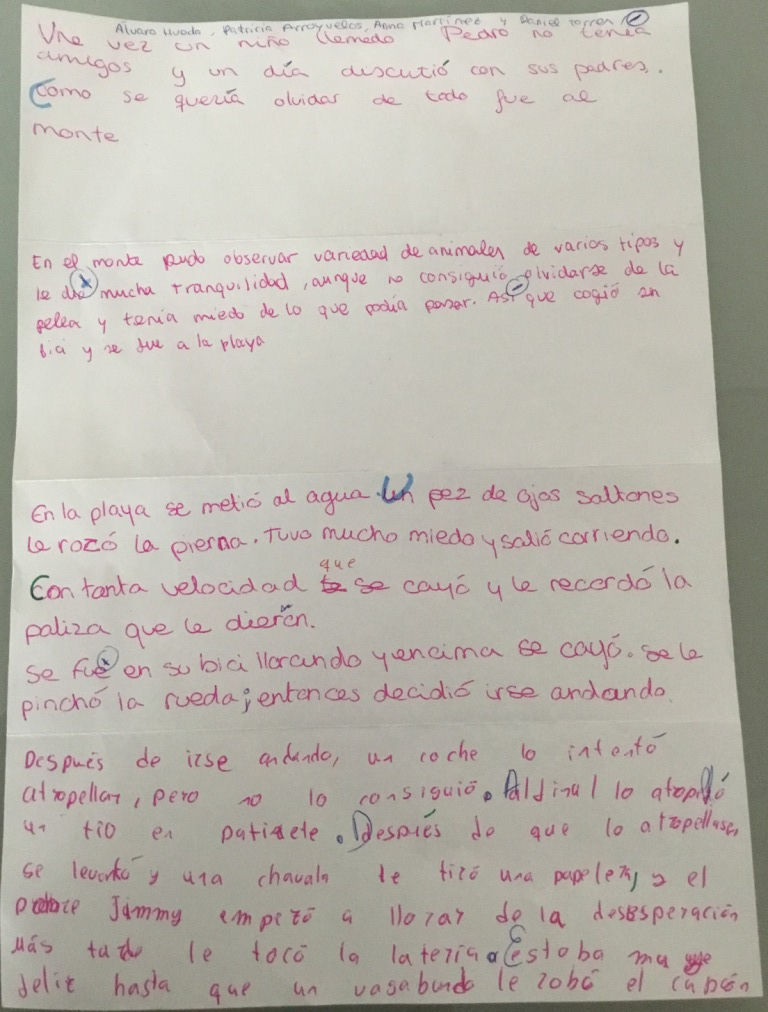 Alvaro Huada, Patricia Arroyuelos, Anna Martínez y Daniel Torren
Una vez un niño llamado Pedro no tenía
amigos y un día discutió con sus padres.
Como se quería olvidar de todo fue al
monte
En el monte pudo observar variedad de animales de varios tipos y
le dio mucha tranquilidad, aunque no consiguió olvidarse de la
pelea y tenía miedo de lo que podía pasar. Así que cogió su
bici y se fue a la playa
En la playa se metió al agua. Un pez de ojos saltones
le rozó la pierna. Tuvo mucho miedo y salió corriendo.
Con tanta velocidad que se cayó y le recordó la
paliza que le dieron.
Se fué en su bici llorando y encima se cayó. Se le
pinchó la rueda; entonces decidió irse andando.
Después de irse andando, un coche lo intentó
atropellar, pero no lo consiguió. Al final lo atropelló
un tio en patinete. Después de que lo atropellase,
se levantó y una chavala le tiró una papelera, y el
pobre Jimmy empezó a llorar de la desesperación
Más tarde le tocó la latería. Estaba muy
feliz hasta que un vagabundo le robó el cupón